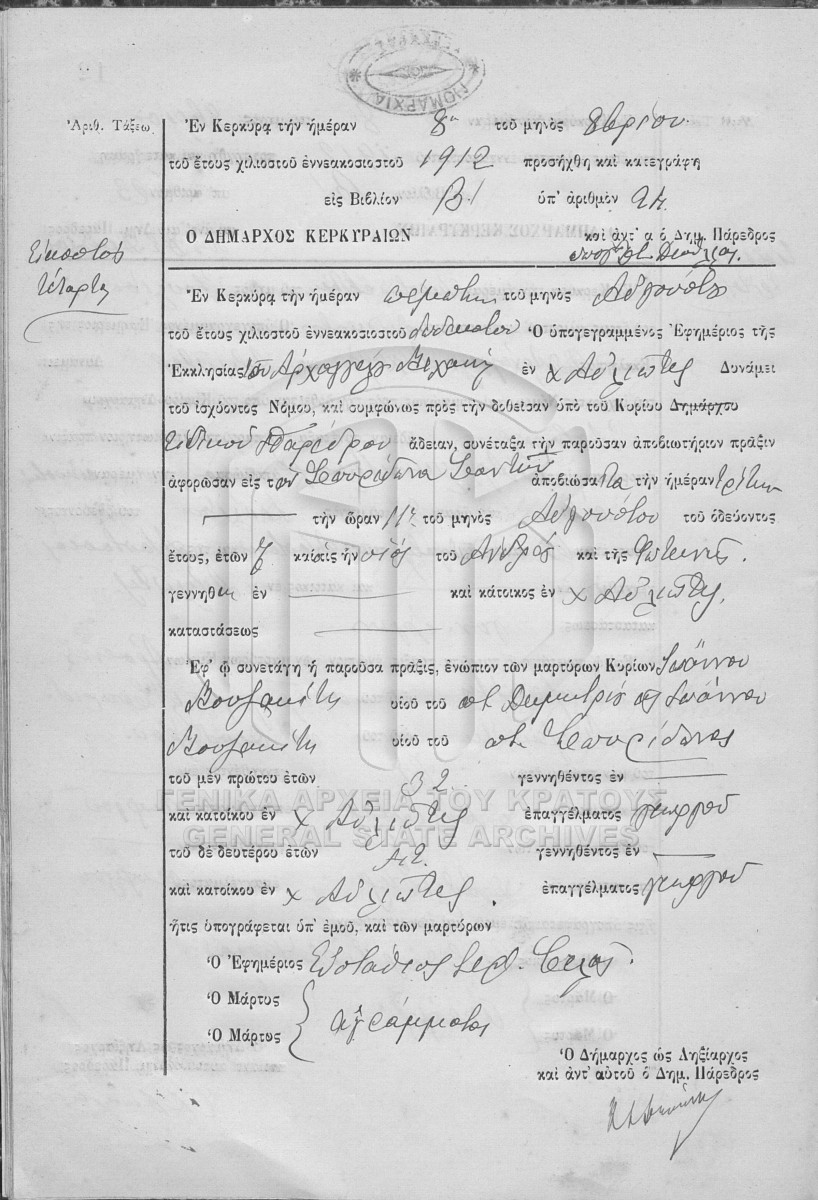 ΝΟΜΑΡΧΙΑ
Ἀριθ. Τάξεω.
Ἐν Κερκύρᾳ τὴν ἡμέραν 8η τοῦ μηνὸς 8βρίου
τοῦ ἔτους χιλιοστοῦ ἐννεακοσιοστοῦ 1912 προσήχθη καὶ κατεγράφη
εἰς Βιβλίον Β1 ὑπ' ἀριθμὸν 24
Ὁ ΔΗΜΑΡΧΟΣ ΚΕΡΚΥΡΑΙΩΝ καὶ ἀντ' α ὁ Δημ. Πάρεδρος
Εἰκοστὸς
τέταρτη
Ἐν Κερκύρᾳ τὴν ἡμέραν πέμπτην τοῦ μηνὸς Αὐγούστου
τοῦ ἔτους χιλιοστοῦ ἐννεακοσιοστοῦ δωδεκάτου Ὁ ὑπογεγραμμένος Ἐφημέριος τῆς
Ἐκκλησίας τοῦ Ἀρχαγγέλου Μιχαήλ ἐν χ Αὐλιῶτες Δυνάμει
τοῦ ἰσχύοντος Νόμου, καὶ συμφώνως πρὸς τὴν δοθεῖσαν ὑπὸ τοῦ Κυρίου Δημάρχου
εἰδικοῦ Παρέδρου ἄδειαν, συνέταξα τὴν παροῦσαν ἀποβιωτήριον πρᾶξιν
ἀφορῶσαν εἰς τον Σπυρίδωνα ἀποβιώσαντα τὴν ἡμέραν τρίτην
τὴν ὥραν 11η τοῦ μηνὸς Αὐγούστου τοῦ ὁδεύοντος
ἔτους, ἐτῶν 7 καὶ εἰς ἣν υἱός τοῦ Ἀνδρέου καὶ τῆς Φωτεινῆς.
γεννηθεν ἐν καὶ κάτοικος ἐν χ Αὐλιῶτες,
καταστάσεως
Ἐφ' ᾧ συνετάγη ἡ παροῦσα πρᾶξις, ἐνώπιον τῶν μαρτύρων Κυρίων Ἰωάννου
Βουζακίτη υἱοῦ τοῦ ποτ. Δημητρίου κ Ἰωάννου
Βουζακίτη υἱοῦ τοῦ ποτ. Σπυρίδωνος
τοῦ μὲν πρώτου ἐτῶν 32 γεννηθέντος ἐν
καὶ κατοίκου ἐν χ Αὐλιῶτες ἐπαγγέλματος γεωργοῦ
τοῦ δὲ δευτέρου ἐτῶν 42 γεννηθέντος ἐν
καὶ κατοίκου ἐν χ Αὐλιῶτες. ἐπαγγέλματος γεωργοῦ
ἥτις ὑπογράφεται ὑπ' ἐμοῦ, καὶ τῶν μαρτύρων
Ὁ Ἐφημέριος Εὐστάθιος Ἱερ.
Ὁ Μάρτυς
Ὁ Μάρτυς ἀγράμματοι
Ὁ Δήμαρχος ὡς Ληξίαρχος
καὶ ἀντ' αὐτοῦ ὁ Δημ. Πάρεδρος
ΓΕΝΙΚΑ ΑΡΧΕΙΑ ΤΟΥ ΚΡΑΤΟΥΣ
GENERAL STATE ARCHIVES